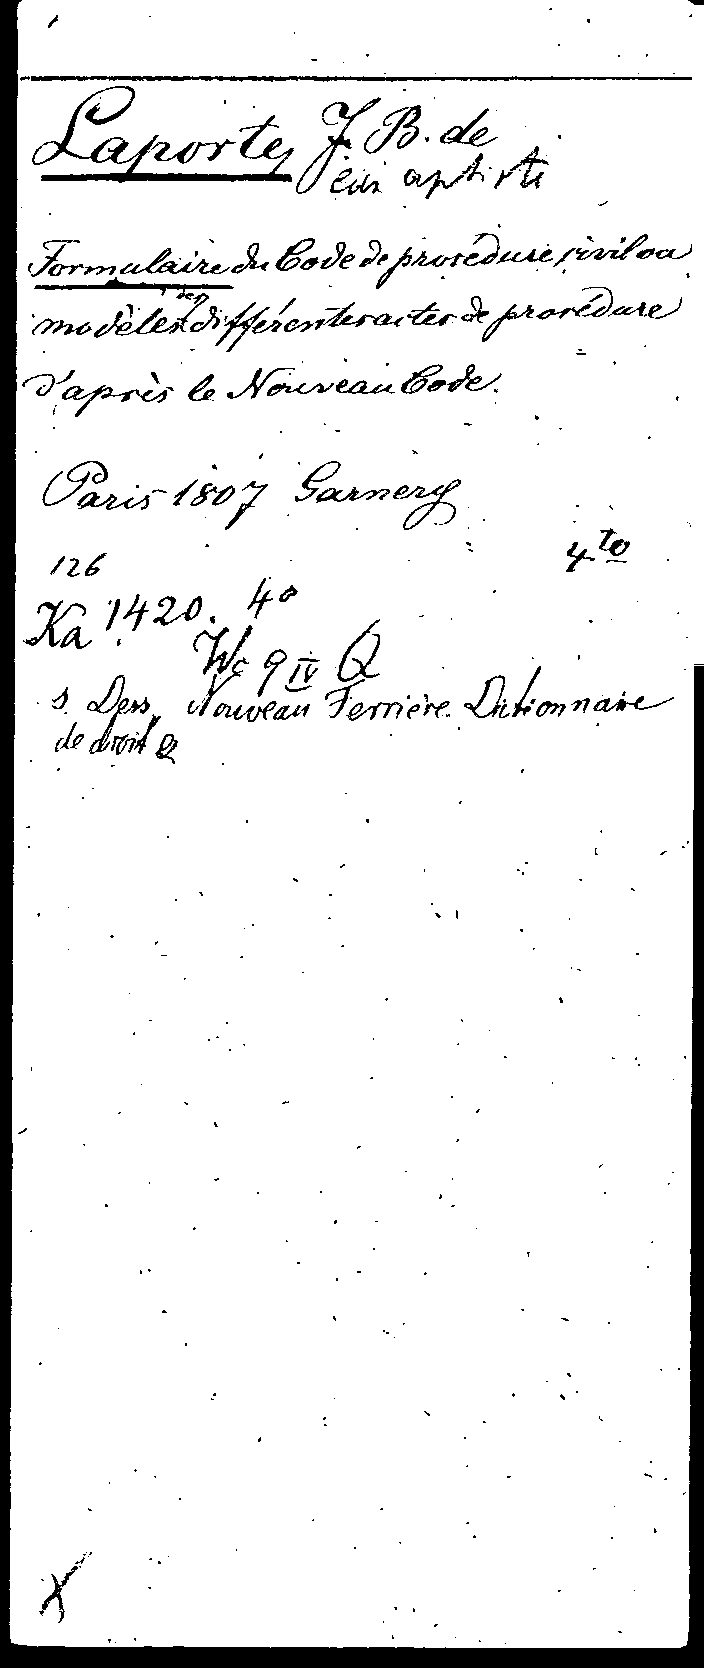 Laporte, J. B. de
ean aptiste
Formulaire du Code de procédure civil ou
des
modèles différentes actes de procédure
d'après le Nouveau Code.
Paris 1807 Garnery
4to
126
Ka 1420. 4°
Wc 9 IV Q
s. Dess. Nouveau Ferrière. Dictionnaire
de droit